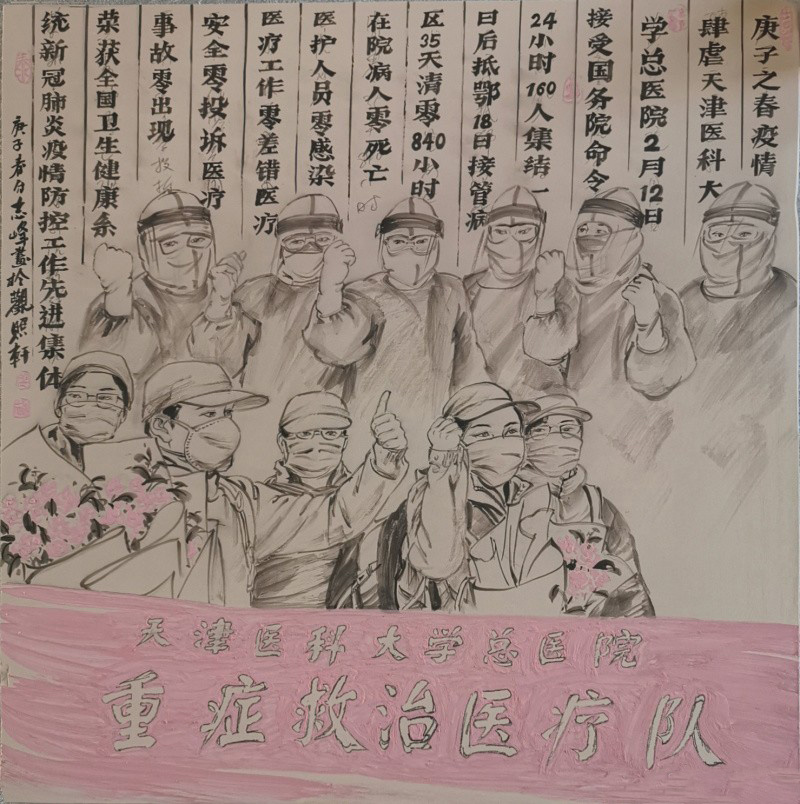 庚子之春疫情
肆虐天津医科大
学总医院2月12日
接受国务院命令
24小时160人集结一
日后抵鄂18日接管病
区35天清零840小时
在院病人零死亡
医护人员零感染
医疗工作零差错医疗
安全零投诉医疗
事故零出现
荣获全国卫生健康系
统新冠肺炎疫情防控工作先进集体
庚子春月志峰画于观照轩
天津医科大学总医院
重症救治医疗队